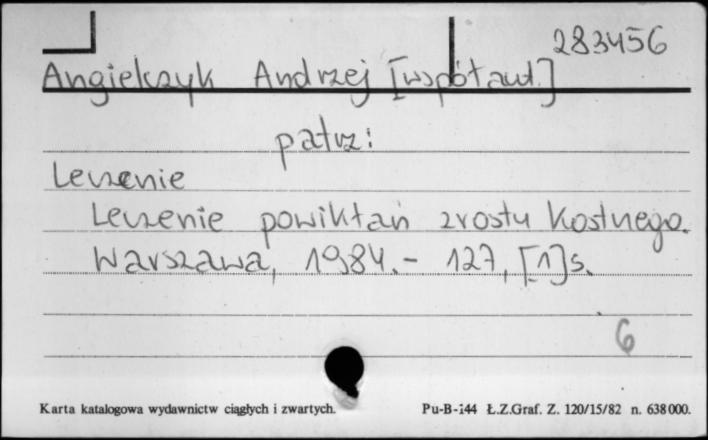 283456
Angielczyk Andrzej [współaut.]
patrz:
Leczenie
Leczenie powikłań zrostu kostnego.
Warszawa, 1984. - 127, [1] s.
6
Karta katalogowa wydawnictw ciągłych i zwartych. Pu-B-144 Ł.Z.Graf. Z. 120/15/82 n. 638000.